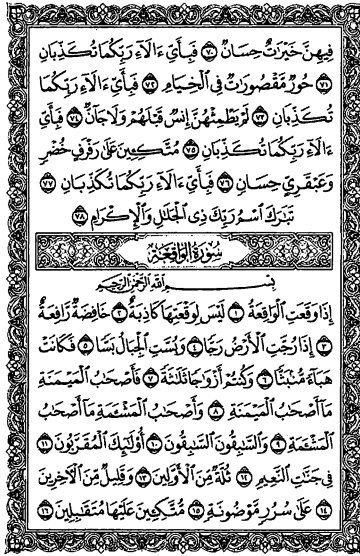 فِيهِنَّ خَيْرَاتٌ حِسَانٌ ٧٠ فَبِأَيِّ ءَالَآءِ رَبِّكُمَا تُكَذِّبَانِ
٧١ حُورٌ مَّقْصُورَاتٌ فِي الْخِيَامِ ٧٢ فَبِأَيِّ ءَالَآءِ رَبِّكُمَا
تُكَذِّبَانِ ٧٣ لَمْ يَطْمِثْهُنَّ إِنسٌ قَبْلَهُمْ وَلَا جَانٌّ ٧٤ فَبِأَيِّ
ءَالَآءِ رَبِّكُمَا تُكَذِّبَانِ ٧٥ مُتَّكِـِٔينَ عَلَىٰ رَفْرَفٍ خُضْرٍ
وَعَبْقَرِيٍّ حِسَانٍ ٧٦ فَبِأَيِّ ءَالَآءِ رَبِّكُمَا تُكَذِّبَانِ ٧٧
تَبَٰرَكَ اسْمُ رَبِّكَ ذِي الْجَلَٰلِ وَالْإِكْرَامِ ٧٨
سُورَةُ الْوَاقِعَةِ
بِسْمِ اللَّهِ الرَّحْمَٰنِ الرَّحِيمِ
إِذَا وَقَعَتِ الْوَاقِعَةُ ١ لَيْسَ لِوَقْعَتِهَا كَاذِبَةٌ ٢ خَافِضَةٌ رَّافِعَةٌ
٣ إِذَا رُجَّتِ الْأَرْضُ رَجًّا ٤ وَبُسَّتِ الْجِبَالُ بَسًّا ٥ فَكَانَتْ
هَبَآءً مُّنۢبَثًّا ٦ وَكُنتُمْ أَزْوَٰجًا ثَلَٰثَةً ٧ فَأَصْحَٰبُ الْمَيْمَنَةِ
مَآ أَصْحَٰبُ الْمَيْمَنَةِ ٨ وَأَصْحَٰبُ الْمَشْـَٔمَةِ مَآ أَصْحَٰبُ
الْمَشْـَٔمَةِ ٩ وَالسَّٰبِقُونَ السَّٰبِقُونَ ١٠ أُولَٰٓئِكَ الْمُقَرَّبُونَ ١١
فِي جَنَّٰتِ النَّعِيمِ ١٢ ثُلَّةٌ مِّنَ الْأَوَّلِينَ ١٣ وَقَلِيلٌ مِّنَ الْآخِرِينَ
١٤ عَلَىٰ سُرُرٍ مَّوْضُونَةٍ ١٥ مُّتَّكِـِٔينَ عَلَيْهَا مُتَقَٰبِلِينَ ١٦